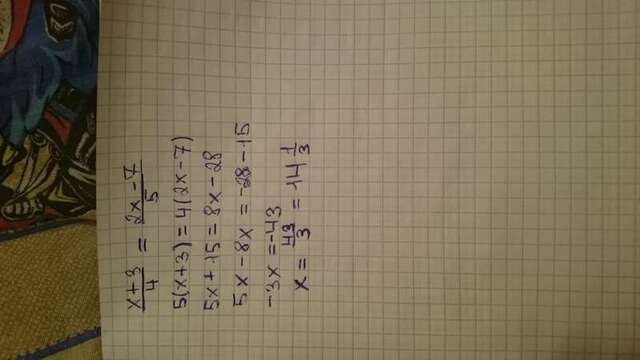 x+3/4 = 2x-7/5
5(x+3) = 4(2x-7)
5x+15 = 8x-28
5x-8x = -28-15
-3x = -43
x = 43/3 = 14 1/3